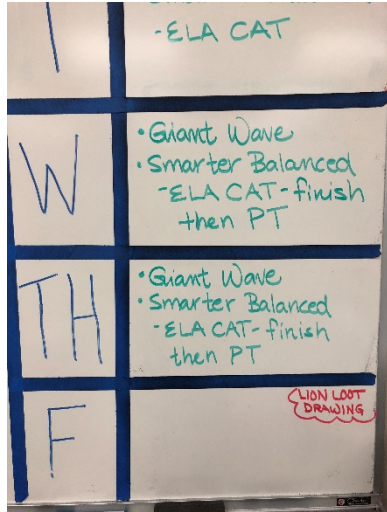 T
-ELA CAT
W
• Giant Wave
• Smarter Balanced
-ELA CAT - finish
then PT
TH
• Giant Wave
• Smarter Balanced
-ELA CAT - finish
then PT
F
LION LOOT
DRAWING